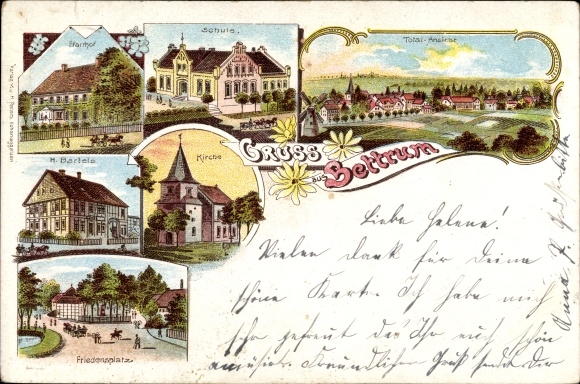 Pfarrhof
Schule.
Total-Ansicht
GRUSS
aus
Bettrum
H. Bartels
Kirche
Friedensplatz
Liebe Helene!
Vielen Dank für Deine
schöne Karte. Ich habe mich
sehr gefreut das Ihr euch schön
amüsirt. Freundlichen Gruß sendet Dir
Anna